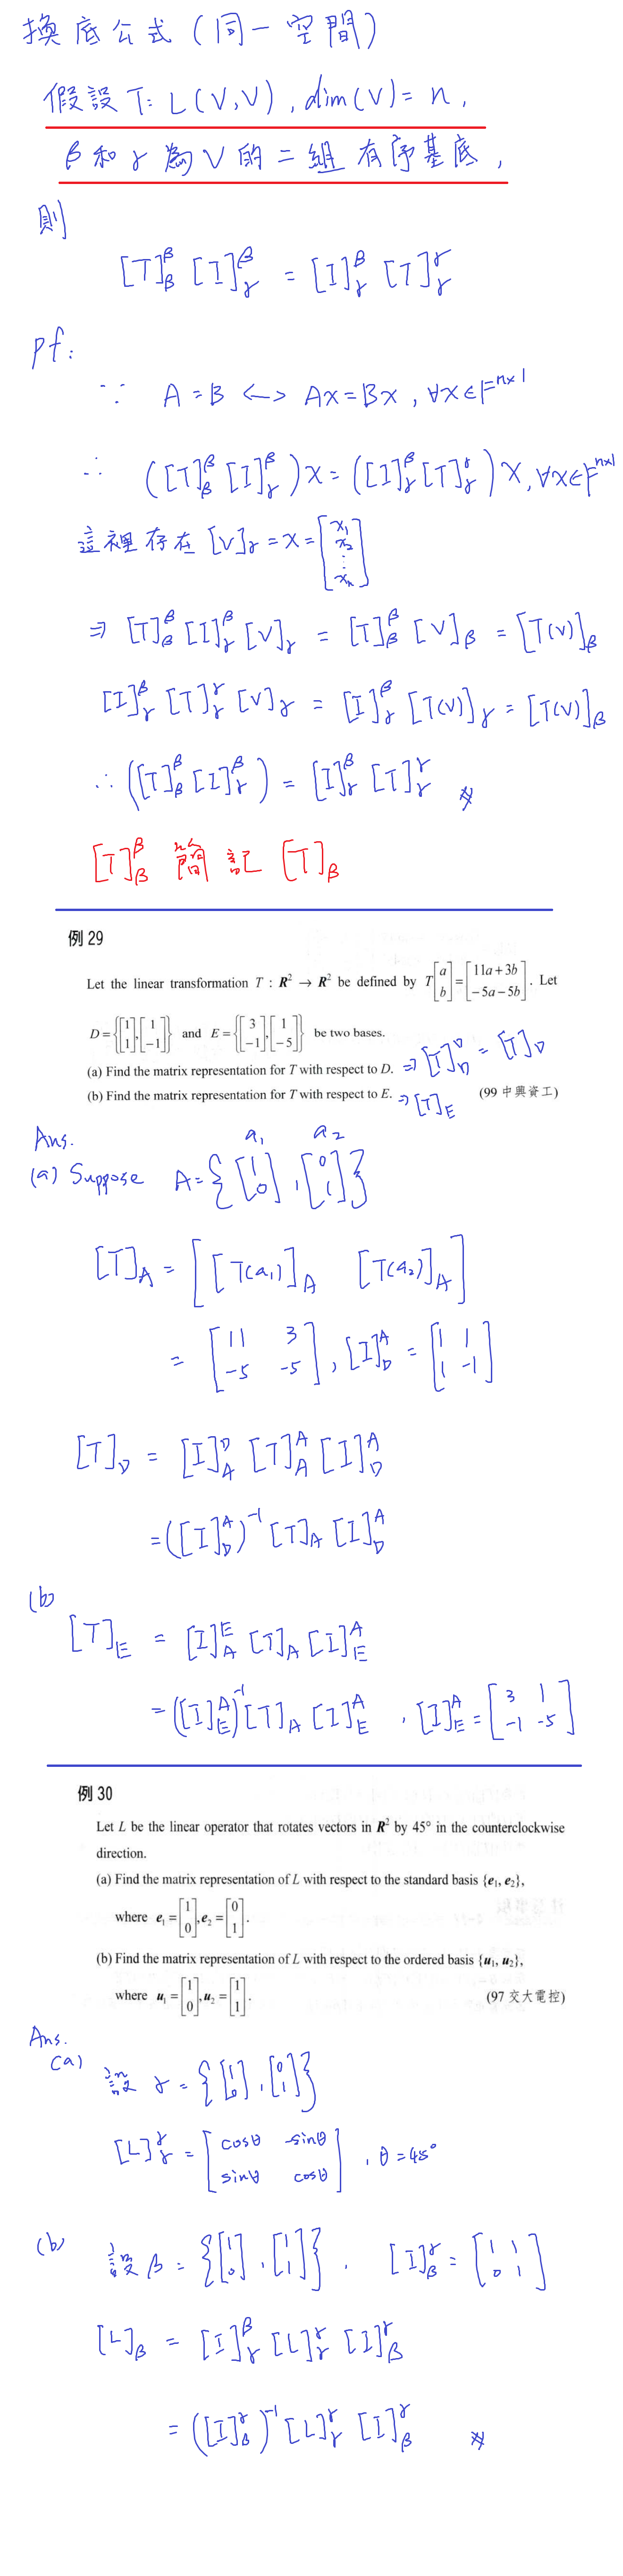 換底公式(同一空間)
假設 T: L(V,V), dim(V)= n,
β 和 γ 為 V 的二組有序基底,
則
[T]_β^β [I]_γ^β = [I]_γ^β [T]_γ^γ
pf:
∵ A = B <-> Ax = Bx, ∀x∈F^{n×1}
∴ ([T]_β^β [I]_γ^β) x = ([I]_γ^β [T]_γ^γ) x, ∀x∈F^{n×1}
這裡存在 [v]_γ = x = [x₁ x₂ ⋮ xₙ]
⇒ [T]_β^β [I]_γ^β [v]_γ = [T]_β^β [v]_β = [T(v)]_β
[I]_γ^β [T]_γ^γ [v]_γ = [I]_γ^β [T(v)]_γ = [T(v)]_β
∴ ([T]_β^β [I]_γ^β) = [I]_γ^β [T]_γ^γ #
[T]_β^β 簡記 [T]_β
例 29
Let the linear transformation T : R² → R² be defined by T[a; b] = [11a + 3b; −5a − 5b]. Let
D = {[1; 1], [1; −1]} and E = {[3; −1], [1; −5]} be two bases.
(a) Find the matrix representation for T with respect to D. ⇒ [T]_D^D = [T]_D
(b) Find the matrix representation for T with respect to E. ⇒ [T]_E (99 中興資工)
Ans.
a₁ a₂
(a) Suppose A = {[1; 0], [0; 1]}
[T]_A = [[T(a₁)]_A [T(a₂)]_A]
= [11 3; -5 -5], [I]_D^A = [1 1; 1 -1]
[T]_D = [I]_A^D [T]_A^A [I]_D^A
= ([I]_D^A)^{-1} [T]_A [I]_D^A
(b)
[T]_E = [I]_A^E [T]_A [I]_E^A
= ([I]_E^A)^{-1} [T]_A [I]_E^A , [I]_E^A = [3 1; -1 -5]
例 30
Let L be the linear operator that rotates vectors in R² by 45° in the counterclockwise
direction.
(a) Find the matrix representation of L with respect to the standard basis {e₁, e₂},
where e₁ = [1; 0], e₂ = [0; 1].
(b) Find the matrix representation of L with respect to the ordered basis {u₁, u₂},
where u₁ = [1; 0], u₂ = [1; 1]. (97 交大電控)
Ans.
(a)
設 γ = {[1; 0], [0; 1]}
[L]_γ^γ = [cosθ -sinθ; sinθ cosθ], θ = 45°
(b) 設 β = {[1; 0], [1; 1]}. [I]_β^γ = [1 1; 0 1]
[L]_β = [I]_γ^β [L]_γ^γ [I]_β^γ
= ([I]_β^γ)^{-1} [L]_γ^γ [I]_β^γ #